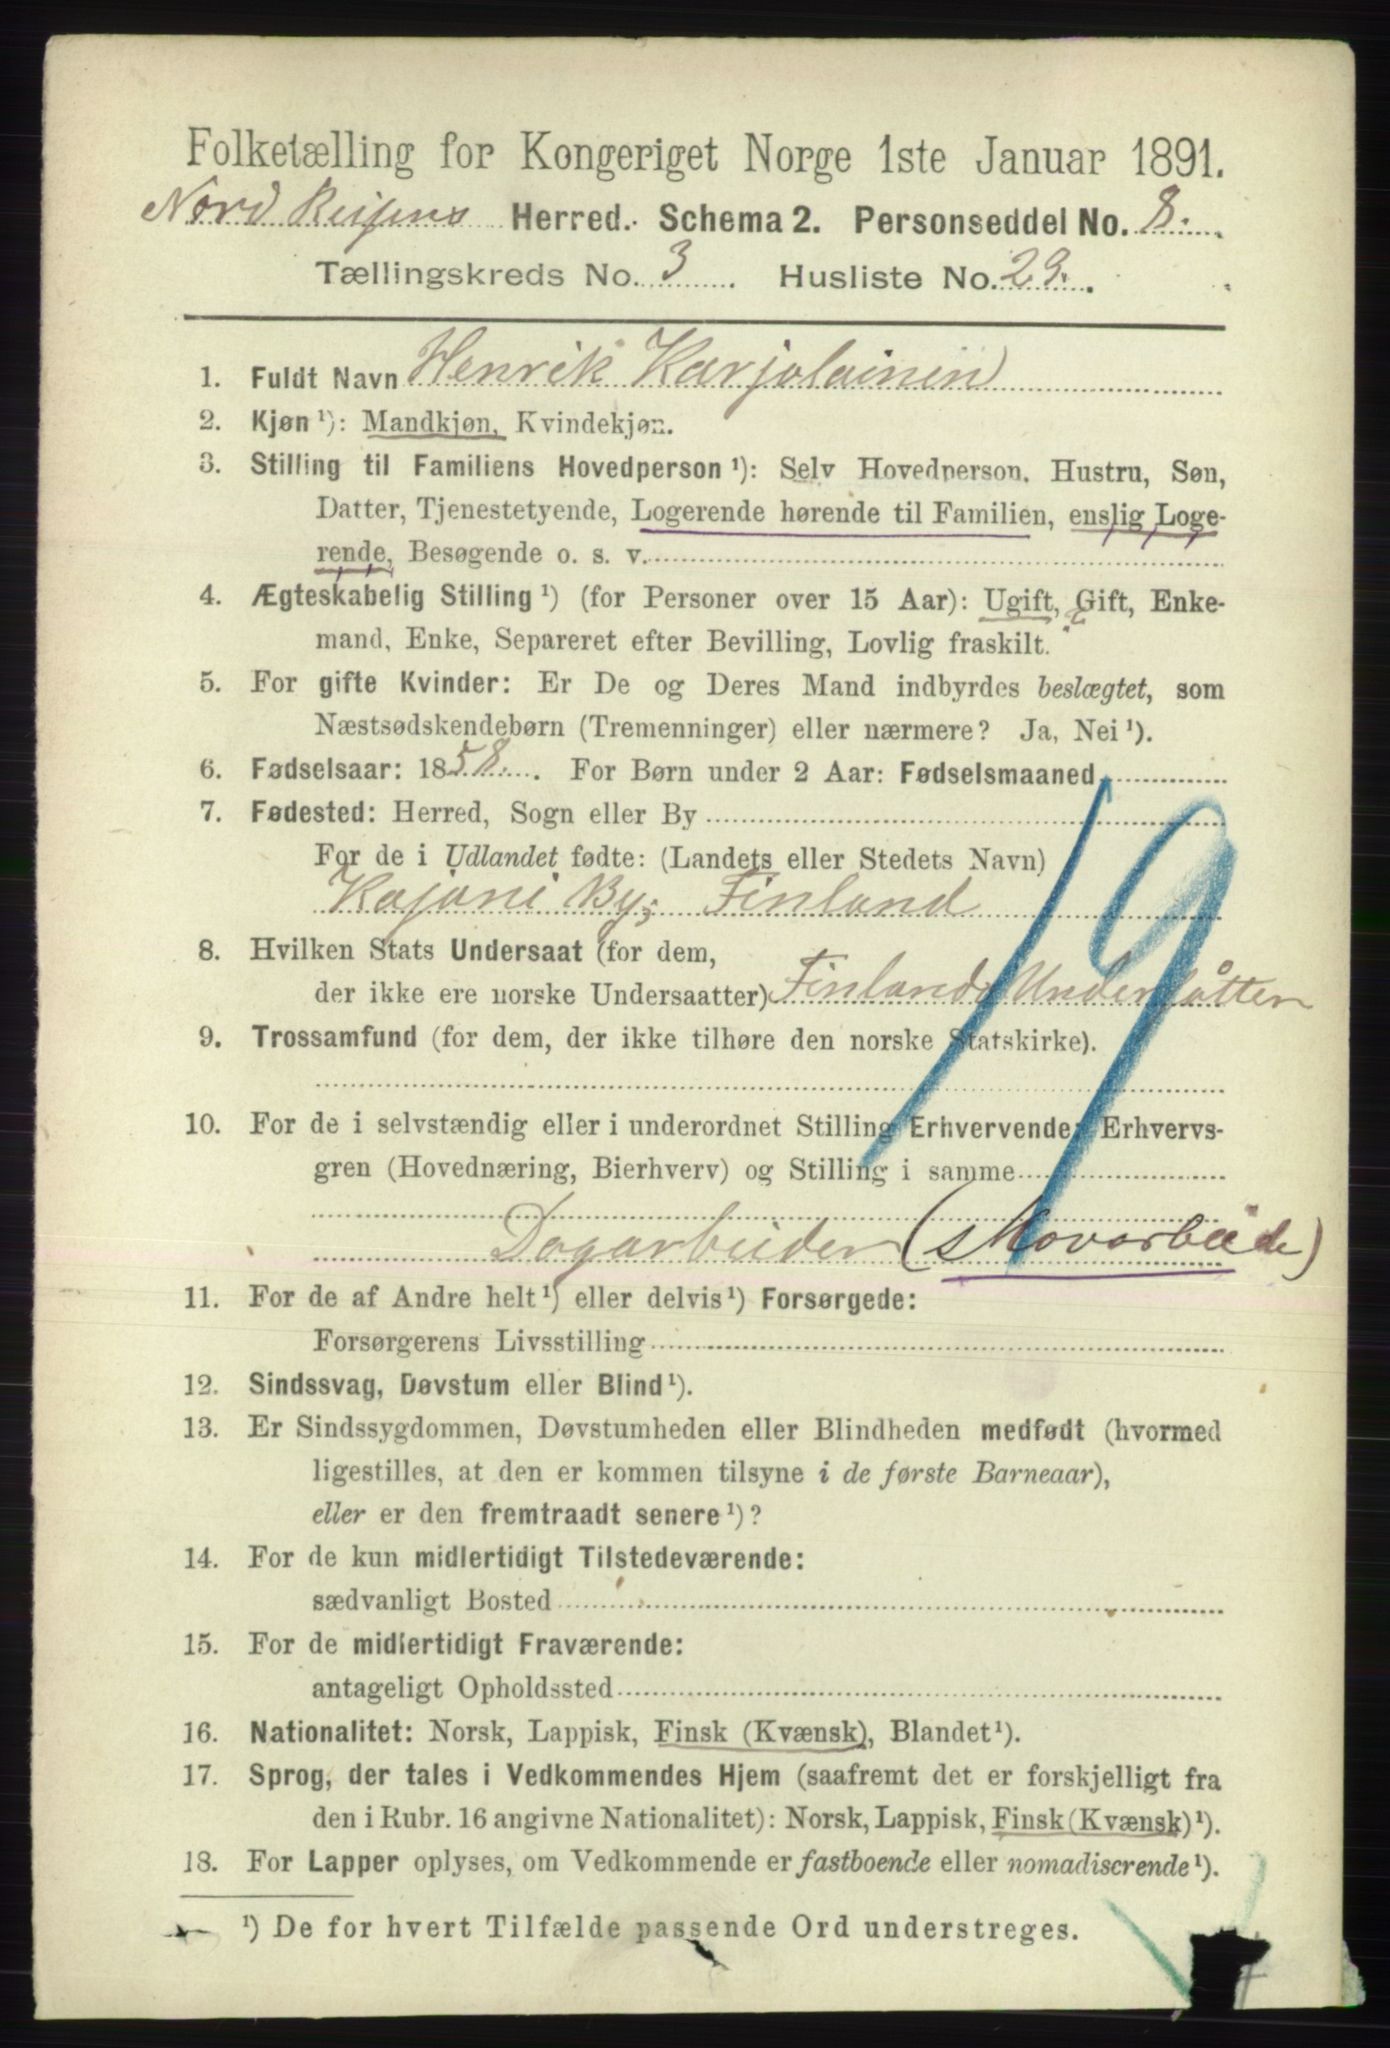 Folketælling for Kongeriget Norge 1ste Januar 1891.
Nord Reisens Herred. Schema 2. Personseddel No. 8.
Tællingskreds No. 3 Husliste No. 29.
1. Fuldt Navn Henrik Karjolainin
2. Kjøn ¹): Mandkjøn, Kvindekjøn.
3. Stilling til Familiens Hovedperson ¹): Selv Hovedperson, Hustru, Søn,
Datter, Tjenestetyende, Logerende hørende til Familien, enslig Loge-
rende, Besøgende o. s. v.
4. Ægteskabelig Stilling ¹) (for Personer over 15 Aar): Ugift, Gift, Enke-
mand, Enke, Separeret efter Bevilling, Lovlig fraskilt.
5. For gifte Kvinder: Er De og Deres Mand indbyrdes beslægtet, som
Næstsødskendebørn (Tremenninger) eller nærmere? Ja, Nei ¹).
6. Fødselsaar: 1858. For Børn under 2 Aar: Fødselsmaaned
7. Fødested: Herred, Sogn eller By
For de i Udlandet fødte: (Landets eller Stedets Navn)
Kajani By; Finland
8. Hvilken Stats Undersaat (for dem,
der ikke ere norske Undersaatter) Finlands Undersåtter
9. Trossamfund (for dem, der ikke tilhøre den norske Statskirke).
19
10. For de i selvstændig eller i underordnet Stilling Erhvervende: Erhvervs-
gren (Hovednæring, Bierhverv) og Stilling i samme
Dagarbeider (skovarbeide)
11. For de af Andre helt ¹) eller delvis ¹) Forsørgede:
Forsørgerens Livsstilling
12. Sindssvag, Døvstum eller Blind ¹).
13. Er Sindssygdommen, Døvstumheden eller Blindheden medfødt (hvormed
ligestilles, at den er kommen tilsyne i de første Barneaar),
eller er den fremtraadt senere ¹)?
14. For de kun midlertidigt Tilstedeværende:
sædvanligt Bosted
15. For de midlertidigt Fraværende:
antageligt Opholdssted
16. Nationalitet: Norsk, Lappisk, Finsk (Kvænsk), Blandet ¹).
17. Sprog, der tales i Vedkommendes Hjem (saafremt det er forskjelligt fra
den i Rubr. 16 angivne Nationalitet): Norsk, Lappisk, Finsk (Kvænsk) ¹).
18. For Lapper oplyses, om Vedkommende er fastboende eller nomadiserende ¹).
¹) De for hvert Tilfælde passende Ord understreges.